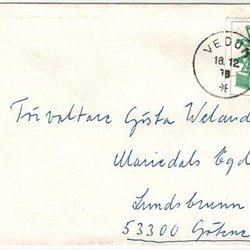 VEDU
18.12
Förvaltare Gösta Weland
Mariedals Egd
Lundsbrunn
53300 Götene